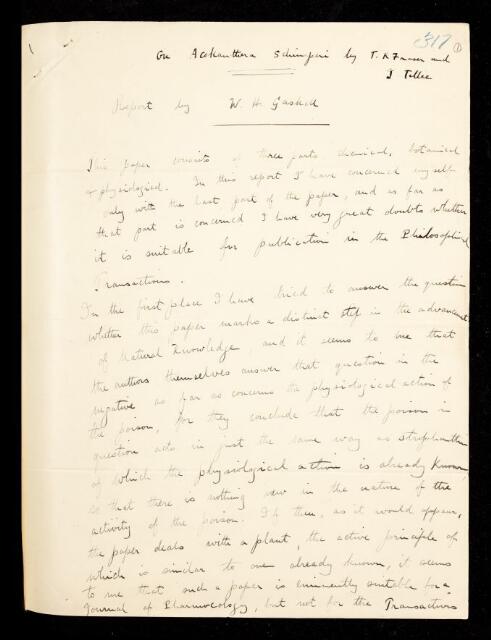 317 1
On Acokanthera Schimperi by T. R. Fraser and
J Tillie
Report by W. H. Gaskell
This paper consists of three parts chemical, botanical
& physiological. In this report I have concerned myself
only with the last part of the paper, and as far as
that part is concerned I have very great doubts whether
it is suitable for publication in the Philosophical
Transactions.
In the first place I have tried to answer the question
whether this paper marks a distinct step in the advancement
of Natural Knowledge, and it seems to me that
the authors themselves answer that question in the
negative as far as concerns the physiological action of
the poison, for they conclude that the poison in
question acts in just the same way as strophanthin
of which the physiological action is already known
so that there is nothing new in the nature of the
activity of the poison. If then, as it would appear,
the paper deals with a plant, the active principle of
which is similar to one already known, it seems
to me that such a paper is eminently suitable for a
Journal of Pharmacology, but not for the Transactions